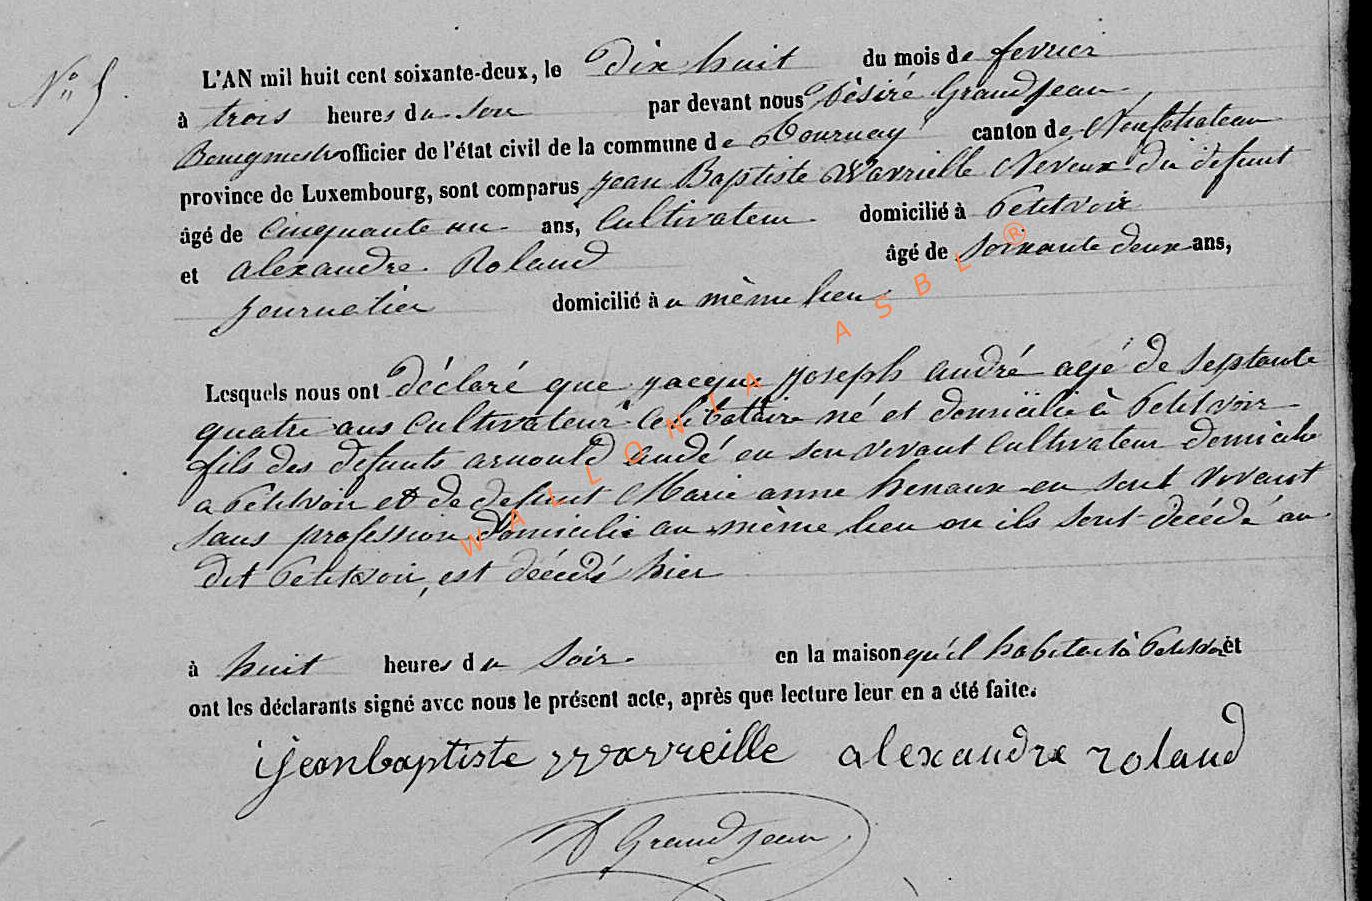 N° 5.
L'AN mil huit cent soixante-deux, le dix huit du mois de fevrier
à trois heures du soir par devant nous Désiré Grandjean
Bourgmestre officier de l'état civil de la commune de Tournay canton de Neufchateau
province de Luxembourg, sont comparus Jean Baptiste Warrielle Neveux du défunt
âgé de Cinquante un ans, Cultivateur domicilié à Petitvoir
et alexandre Roland âgé de soixante deux ans,
journalier domicilié à u même lieu
Lesquels nous ont déclaré que jacque joseph andré agé de septante
quatre ans Cultivateur Celibataire né et domicilié à Petitvoir
fils des defunts arnould andé en son vivant Cultivateur domicilie
a Petitvoir et de defunt Marie anne henaux en sont vivant
sans profession domicilie au même lieu ou ils sont décédé au
dit Petitvoir, est décédé hier
à huit heures du Soir. en la maison qu'il habitait à Petitvoir et
ont les déclarants signé avec nous le présent acte, après que lecture leur en a été faite.
jeanbaptiste warreille alexandre roland
D Grandjean
WALLONIA ASBL ®